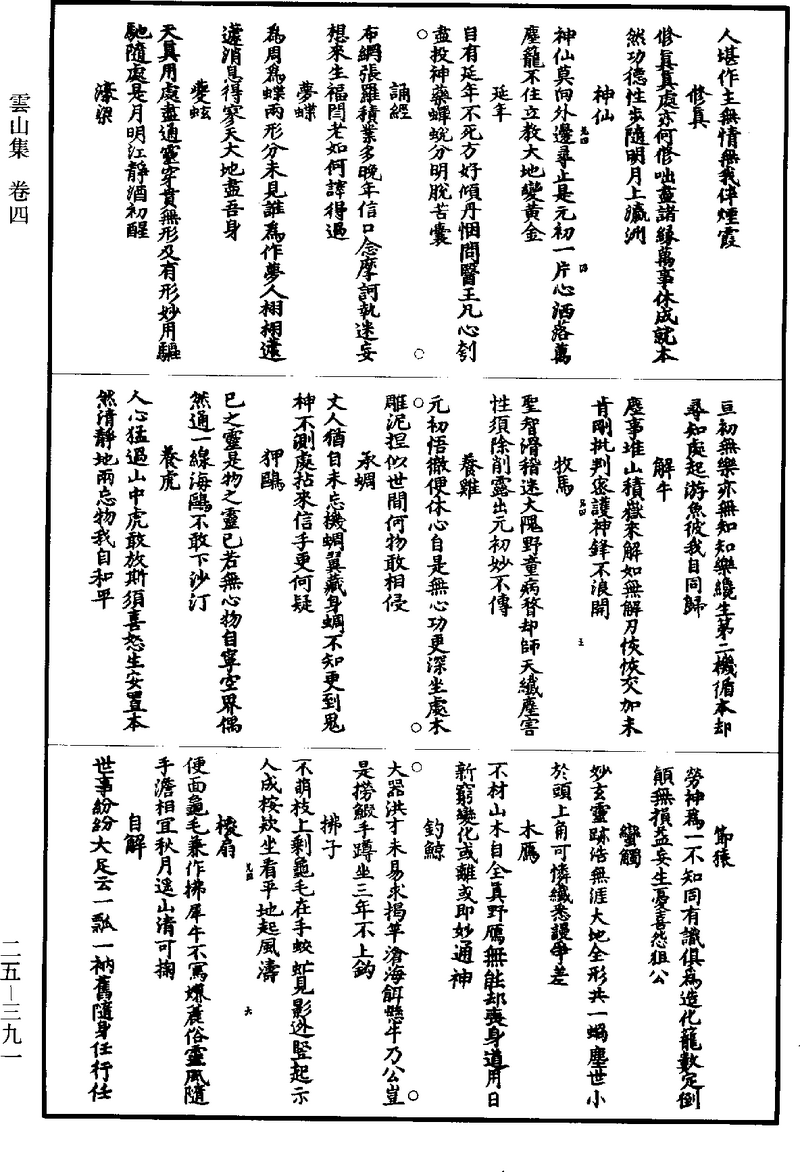 人堪作主無情無我伴煙霞
修真
修真真處亦何修咄盡諸緣萬事休成就本
然功德性步隨明月上瀛洲
神仙
神仙莫向外邊尋止是元初一片心洒落萬
塵籠不住立教大地變黃金
延年
自有延年不死方好傾丹悃問醫王凡心剳
盡投神藥蟬蛻分明脫苦囊
誦經
布網張羅積業多晚年信口念摩訶執迷妄
想來生福閻老如何諱得過
夢蝶
為周為蝶兩形分未見誰為作夢人栩栩遽
遽消息得寥天大地盡吾身
夔蚿
天真用處盡通靈穿貫無形及有形妙用驅
馳隨處是月明江靜酒初醒
濠梁
亘初無樂亦無知知樂纔生第二機循本却
尋知處起游魚彼我自同歸
解牛
塵事堆山積嶽來解如無解刀恢恢交加未
肯剛批判密護神鋒不浪開
牧馬
聖智滑稽迷大隗野童病瞀却師天纖塵害
性須除削露出元初妙不傳
養雞
元初悟徹便休心自是無心功更深坐處木
雕泥捏似世間何物敢相侵
承蜩
丈人猶自未忘機蜩翼藏身蜩不知更到鬼
神不測處拈來信手更何疑
狎鷗
已之靈是物之靈已若無心物自寧空界偶
然通一線海鷗不敢下沙汀
養虎
人心猛過山中虎敢放斯須喜怒生安置本
然清靜地兩忘物我自和平
第猿
勞神為一不知同有識俱為造化籠數定倒
顛無損益妄生憂喜怨狙公
蠻觸
妙玄靈跡浩無涯大地全形共一蝸塵世小
於頭上角可憐纖悉謾爭差
木鴈
不材山木自全真野鴈無能却喪身道用日
新窮變化或離或即妙通神
釣鯨
大器洪才未易求揭竿滄海餌懸牛乃公豈
是撈鰕手蹲坐三年不上鈎
拂子
不萌枝上剩龜毛在手蛟虻見影逃竪起示
人成按欵坐看平地起風濤
椶扇
便面龜毛兼作拂犀牛不寫嫌麄俗靈風隨
手澹相宜秋月遙山清可掬
自解
世事紛紛大足云一瓢一衲舊隨身任行任
雲山集 卷四
二五—三九一